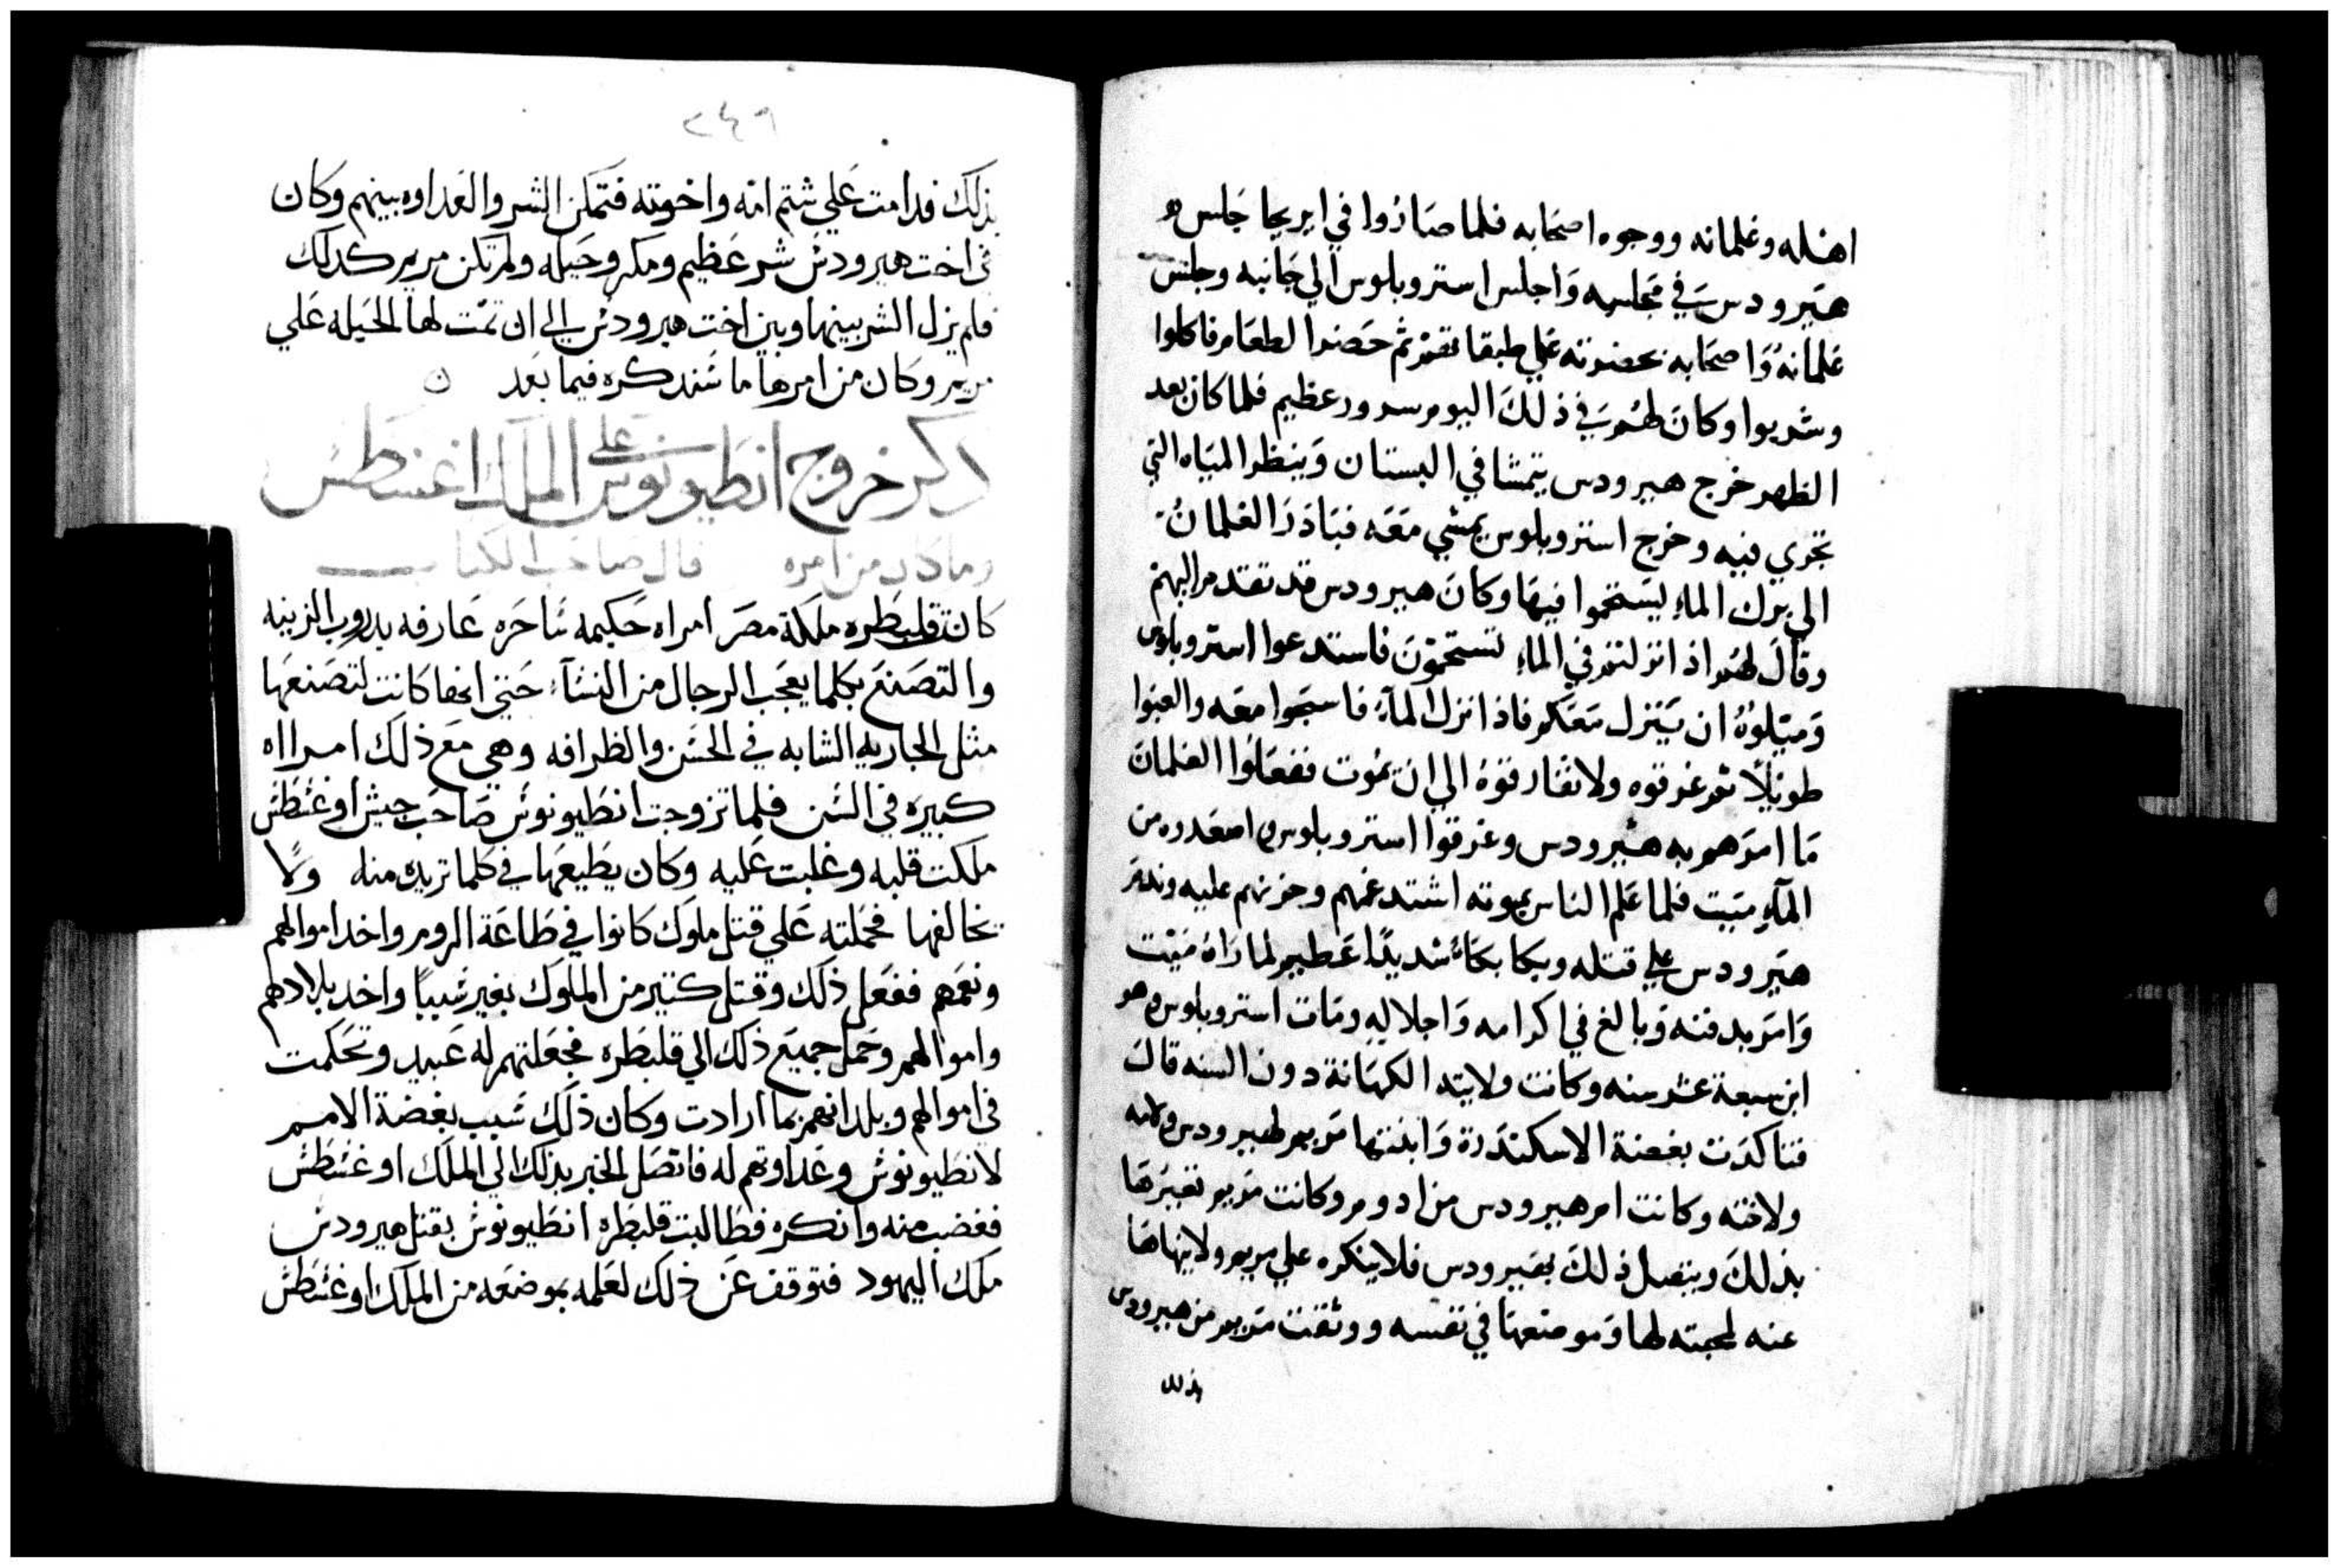 اهله وغلمانه ووجوه اصحابه فلما صاروا في ايريحا جلس
هيرودس في مجلسه واجلس استروبلوس الي جانبه وجلس
غلمانه واصحابه بحضرته علي طبقاتهم ثم حضر الطعام فاكلوا
وشربوا وكان لهم في ذلك اليوم سرور عظيم فلما كان بعد
الظهر خرج هيرودس يتمشا في البستان وينظر المياه التي
تجري فيه وخرج استروبلوس يمشي معه فبادر الغلمان
الي برك الماء ليستحموا فيها وكان هيرودس قد تقدم اليهم
وقال لهم اذا نزلتم في الماء تستحمون فاستدعوا استروبلوس
وميلوه ان ينزل معكم فاذا نزل الماء فاسبحوا معه والعبوا
طويلا ثم غرقوه ولا تفارقوه الي ان يموت ففعلوا الغلمان
ما امرهم به هيرودس وغرقوا استروبلوس واصعدوه من
الماء ميت فلما علم الناس بموته اشتد غمهم وحزنهم عليه وندم
هيرودس علي قتله وبكا بكاء شديدا عظيم لما راه ميت
وامر بدفنه وبالغ في اكرامه واجلاله ومات استروبلوس وهو
ابن سبعة عشر سنه وكانت ولايته الكهانة دون السنه قال
فتاكدت بغضة الاسكندرة وابنتها مريم لهيرودس ولامه
ولاخته وكانت ام هيرودس من ادوم وكانت مريم تعيرها
بذلك ويتصل ذلك بهيرودس فلا ينكره علي مريم ولا ينهاها
عنه لمحبته لها وموضعها في نفسه ووثقت مريم من هيرودس
بذلك
٢٤٩
بذلك فدامت علي شتم امه واخوته فتمكن الشر والعداوه بينهم وكان
في اخت هيرودس شر عظيم ومكر وحيله ولم تكن مريم كدلك
فلم يزل الشر بينها وبين اخت هيرودس الي ان تمت لها الحيله علي
مريم وكان من امرها ما سنذكره فيما بعد
ذكر خروج انطيونوس علي الملك اغسطس
وما كان من امره قال صاحب الكتاب
كانت قلبطره ملكة مصر امراه حكيمه ساحره عارفه بدروب الزينه
والتصنع بكلما يعجب الرجال من النساء حتي انها كانت لتصنعها
مثل الجاريه الشابه في الحسن والظرافه وهي مع ذلك امرااه
كبيره في السن فلما تزوجت انطيونوس صاحب جيش اوغسطس
ملكت قلبه وغلبت عليه وكان يطيعها في كلما تريده منه ولا
يخالفها فحملته علي قتل ملوك كانوا في طاعة الروم واخد اموالهم
ونعمهم ففعل ذلك وقتل كتير من الملوك بغير سببا واخد بلادهم
واموالهم وحمل جميع ذلك الي قلبطره فجعلتهم له عبيد وتحكمت
في اموالهم وبلدانهم بما ارادت وكان ذلك سبب بغضة الامم
لانطيونوس وعداوتهم له فاتصل الخبر بذلك الي الملك اوغسطس
فغضب منه وانكره فطالبت قلبطره انطيونوس بقتل هيرودس
ملك اليهود فتوقف عن ذلك لعلمه بموضعه من الملك اوغسطس